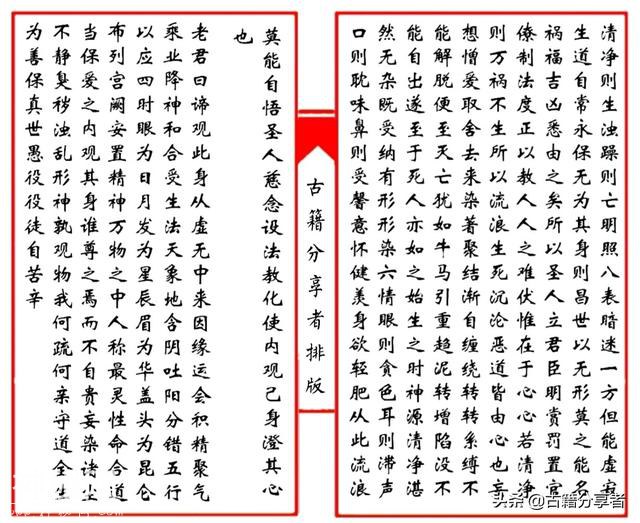 清净则生浊躁则亡明照八表暗迷一方但能虚寂
生道自常永保无为其身则昌世以无形莫之能名
祸福吉凶悉由之矣所以圣人立君臣明赏罚置官
僚制法度正以教人人之难伏惟在于心心若清净
则万祸不生所以流浪生死沉沦恶道皆由心也妄
想憎爱取舍去来染著聚结渐自缠绕转转系缚不
能解脱便至灭亡犹如牛马引重趋泥转增陷没不
能自出遂至于死人亦如之始生之时神源清净湛
然无杂既受纳有形形染六情眼则贪色耳则滞声
口则耽味鼻则受馨意怀健羡身欲轻肥从此流浪
古籍分享者排版
莫能自悟圣人慈念设法教化使内观己身澄其心
也
老君曰谛观此身从虚无中来因缘运会积精聚气
乘业降神和合受生法天象地含阴吐阳分错五行
以应四时眼为日月发为星辰眉为华盖头为昆仑
布列宫阙安置精神万物之中人称最灵性命合道
当保爱之内观其身谁尊之焉而不自贵妄染诸尘
不静臭秽浊乱形神孰观物我何疏何亲守道全生
为善保真世愚役役徒自苦辛
头条 @古籍分享者